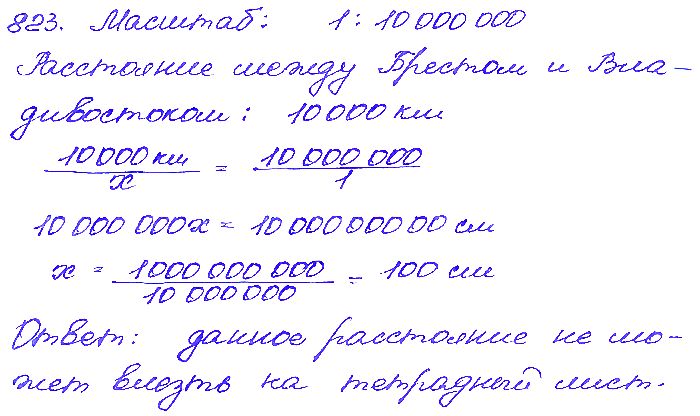 823. Масштаб: 1 : 10 000 000
Расстояние между Брестом и Вла-
дивостоком: 10 000 км
10 000 км / x = 10 000 000 / 1
10 000 000x = 10 000 000 00 см
x = 1000 000 000 / 10 000 000 = 100 см
Ответ: данное расстояние не мо-
жет влезть на тетрадный лист.